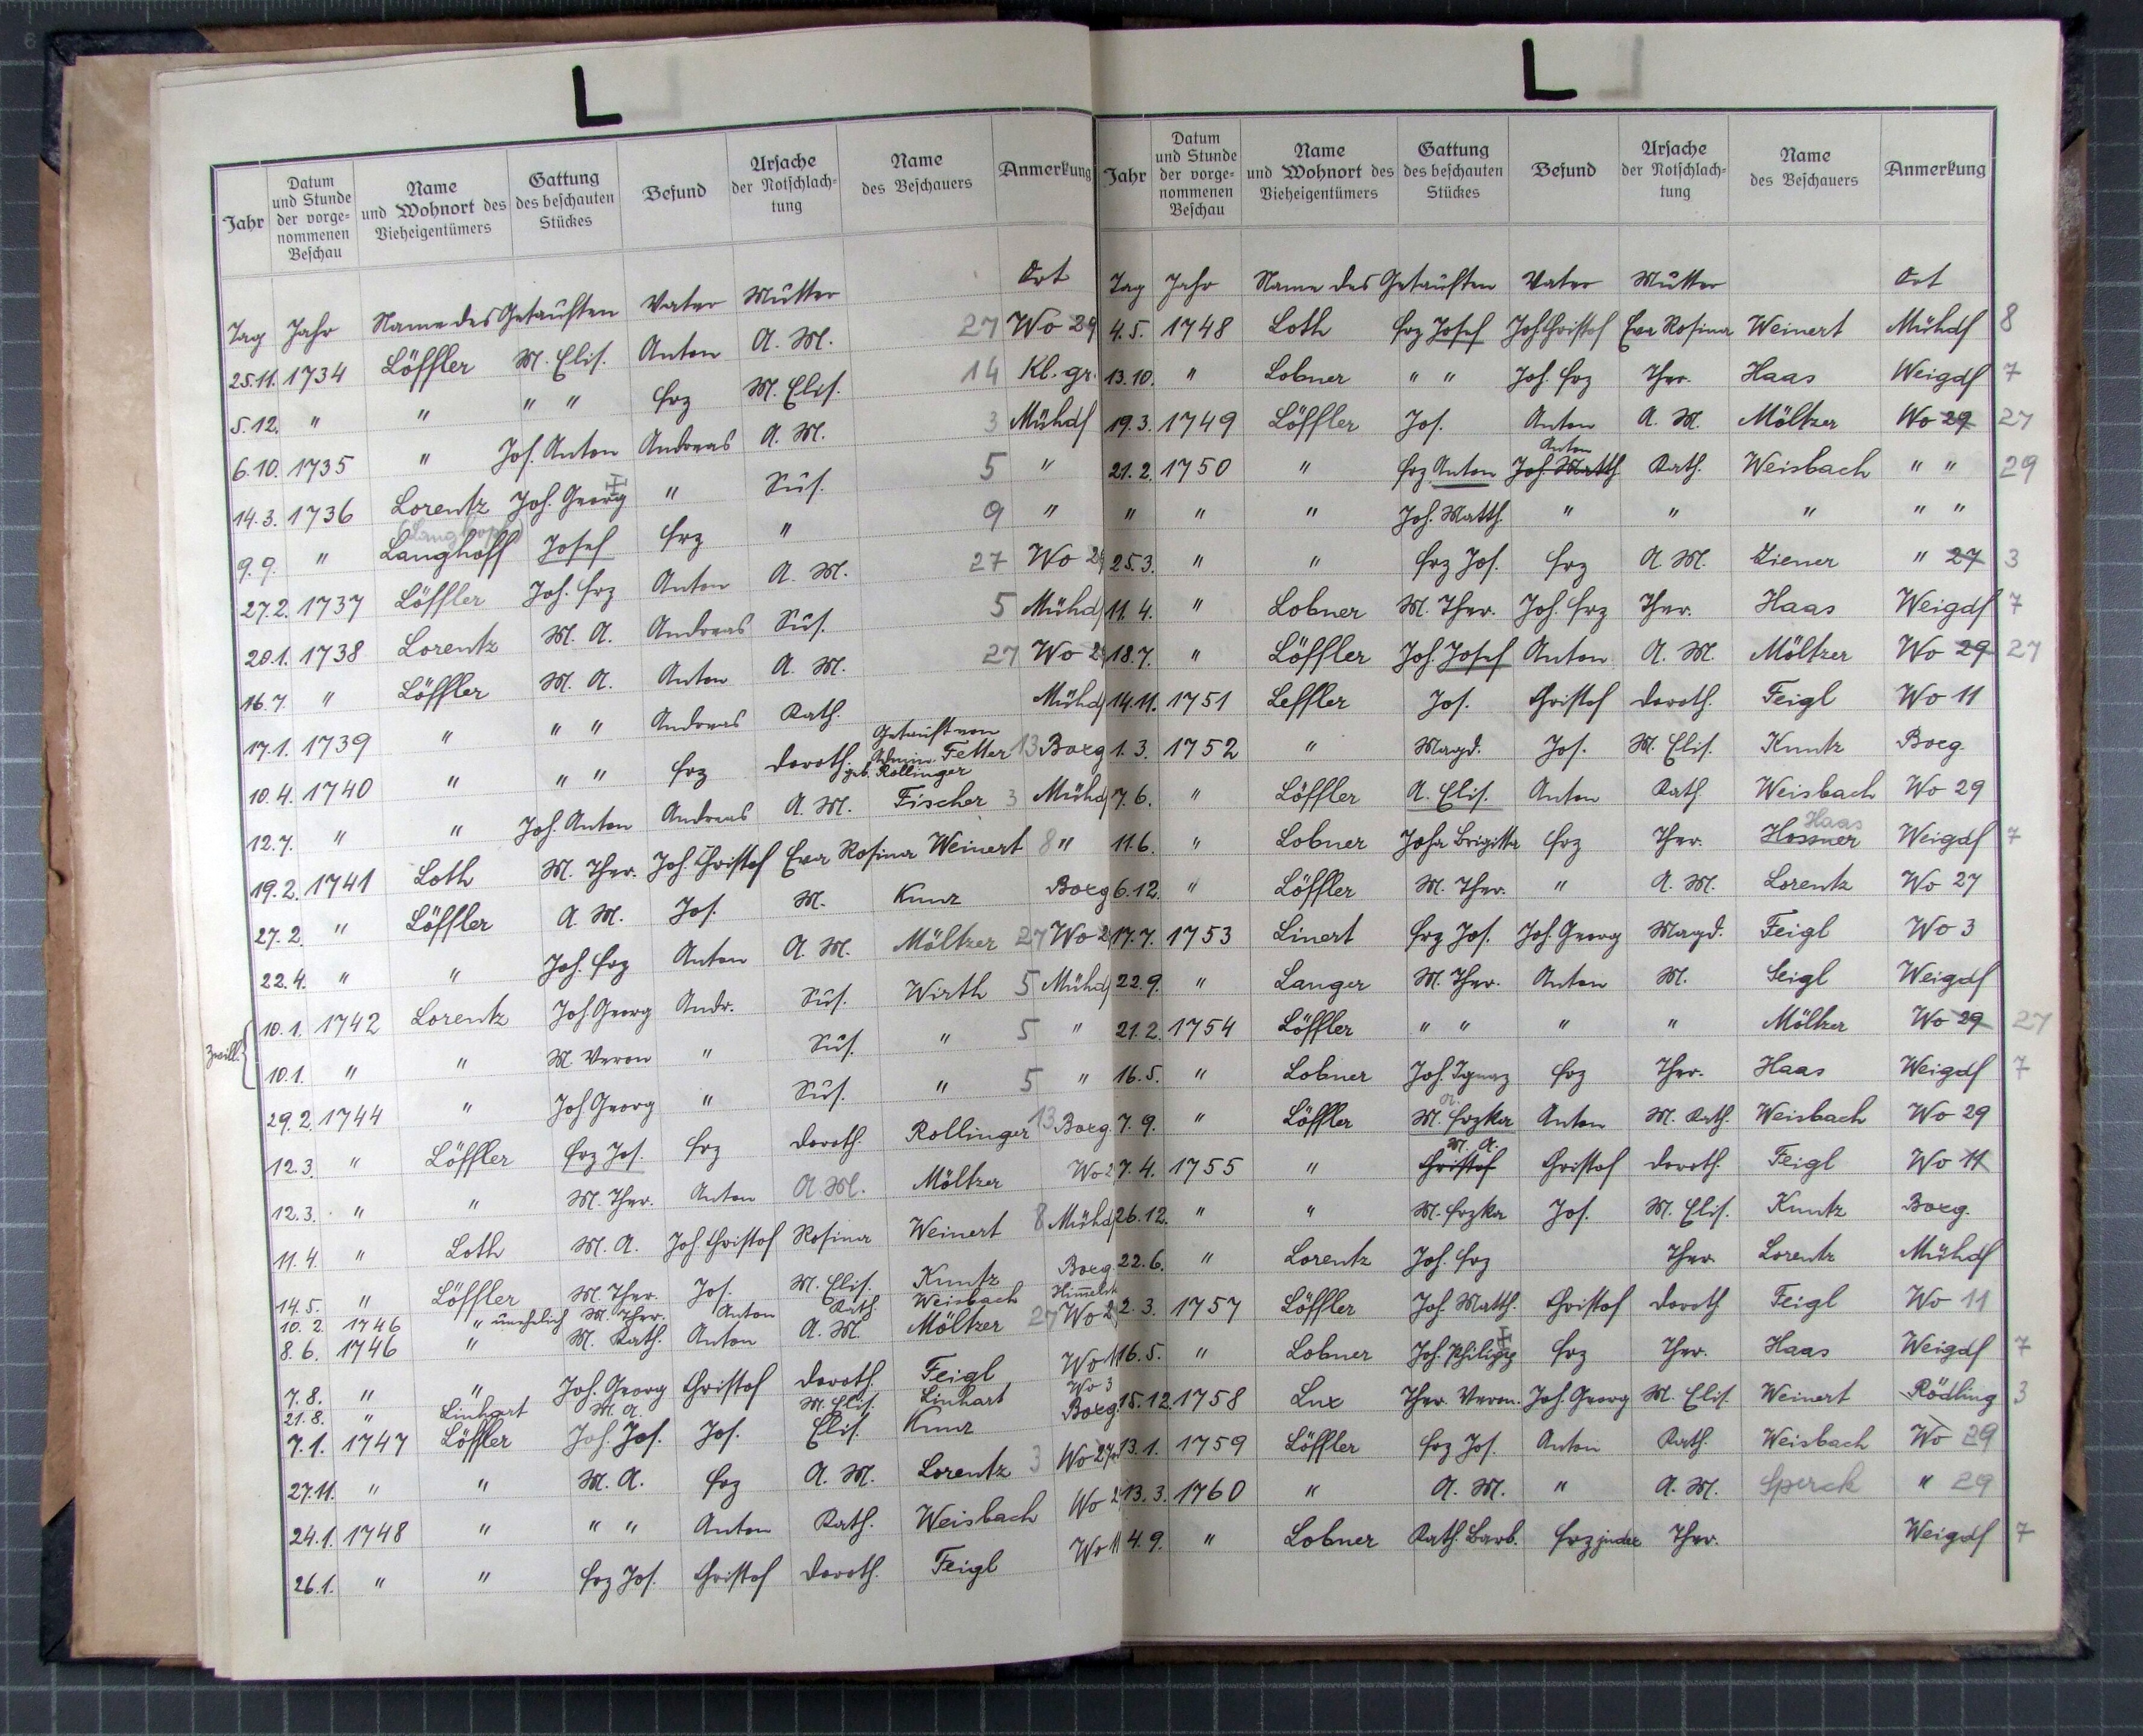 L
Jahr
Datum und Stunde der vorge-nommenen Beschau
Name und Wohnort des Vieheigentümers
Gattung des beschauten Stückes
Befund
Ursache der Notschlach-tung
Name des Beschauers
Anmerkung
Tag Jahr Name des Getauften Vater Mutter Ort
25.11. 1734 Löffler M. Elis. Anton A. M. 27 Wo 29
5.12. " " " " Frz M. Elis. 14 Kl. gr.
6.10. 1735 " Joh. Anton Andreas A. M. 3 Mühdf
14.3. 1736 Lorentz Joh. Georg " Sus. 5 "
9.9. " Langhoff (Langhopf) Josef Frz " 9 "
27.2. 1737 Löffler Joh. Frz Anton A. M. 27 Wo
20.1. 1738 Lorentz M. A. Andreas Sus. 5 Mühd
16.7. " Löffler M. A. Anton A. M. 27 Wo
17.1. 1739 " " " Andreas Kath. Mühd
10.4. 1740 " " " Frz Doroth. geb. Rollinger Getauft von Admin. Fetter 13 Bozg
12.7. " " Joh. Anton Andreas A. M. Fischer 3 Mühd
19.2. 1741 Loth M. Ther. Joh. Christof Eva Rosina Weinert 8 "
27.2. " Löffler A. M. Jos. M. Kunz Bozg
22.4. " " Joh. Frz Anton A. M. Möltzer 27 Wo
Zwill. { 10.1. 1742 Lorentz Joh. Georg Andr. Sus. Wirth 5 Mühd
10.1. " " M. Veron " Sus. " 5 "
29.2. 1744 " Joh. Georg " Sus. " 5 "
12.3. " Löffler Frz Jos. Frz Doroth. Rollinger 13 Bozg.
12.3. " " M. Ther. Anton A. M. Möltzer Wo
11.4. " Loth M. A. Joh. Christof Rosina Weinert 8 Mühd
14.5. " Löffler M. Ther. Jos. M. Elis. Kuntz Bozg.
10.2. 1746 " unehelich M. Ther. Anton Kath. Weisbach
8.6. 1746 " M. Kath. Anton A. M. Möltzer 27 Wo
7.8. " " Joh. Georg Christof Doroth. Feigl Wo 11
21.8. " Linhart M. A. M. Elis. Linhart Wo 3
7.1. 1747 Löffler Joh. Jos. Jos. Elis. Kunz Bozg.
27.11. " " M. A. Frz A. M. Lorentz 3 Wo 27
24.1. 1748 " " " Anton Kath. Weisbach Wo
26.1. " " Frz Jos. Christof Doroth. Feigl Wo 11
L
Jahr
Datum und Stunde der vorge-nommenen Beschau
Name und Wohnort des Vieheigentümers
Gattung des beschauten Stückes
Befund
Ursache der Notschlach-tung
Name des Beschauers
Anmerkung
Tag Jahr Name des Getauften Vater Mutter Ort
4.5. 1748 Loth Frz Josef Joh. Christof Eva Rosina Weinert Mühdf 8
13.10. " Lobner " " Joh. Frz Ther. Haas Weigdf 7
19.3. 1749 Löffler Jos. Anton A. M. Möltzer Wo 29 27
21.2. 1750 " Frz Anton Joh. Matth. Anton Kath. Weisbach " " 29
" " " Joh. Matth. " " " " "
25.3. " " Frz Jos. Frz A. M. Ziener " 27 3
11.4. " Lobner M. Ther. Joh. Frz Ther. Haas Weigdf 7
18.7. " Löffler Joh. Josef Anton A. M. Möltzer Wo 29 27
14.11. 1751 Leffler Jos. Christof Doroth. Feigl Wo 11
1.3. 1752 " Magd. Jos. M. Elis. Kuntz Bozg.
7.6. " Löffler A. Elis. Anton Kath. Weisbach Wo 29
11.6. " Lobner Joha Brigitta Frz Ther. Hossner Haas Weigdf 7
6.12. " Löffler M. Ther. " A. M. Lorentz Wo 27
17.7. 1753 Linert Frz Jos. Joh. Georg Magd. Feigl Wo 3
22.9. " Langer M. Ther. Anton M. Seigl Weigdf
21.2. 1754 Löffler " " " " Möltzer Wo 29 27
16.5. " Lobner Joh. Ignaz Frz Ther. Haas Weigdf 7
7.9. " Löffler M. Frzka Anton M. Kath. Weisbach Wo 29
7.4. 1755 " Christof M. A. Christof Doroth. Feigl Wo 11
26.12. " " M. Frzka Jos. M. Elis. Kuntz Bozg.
22.6. " Lorentz Joh. Frz Ther. Lorentz Mühdf
2.3. 1757 Löffler Joh. Matth. Christof Doroth Feigl Wo 11
16.5. " Lobner Joh. Philipp Frz Ther. Haas Weigdf 7
15.12. 1758 Lux Ther. Veron. Joh. Georg M. Elis. Weinert Rödling 3
13.1. 1759 Löffler Frz Jos. Anton Kath. Weisbach Wo 29
13.3. 1760 " A. M. " A. M. Sperck " 29
4.9. " Lobner Kath. Barb. Frz judex Ther. Weigdf 7